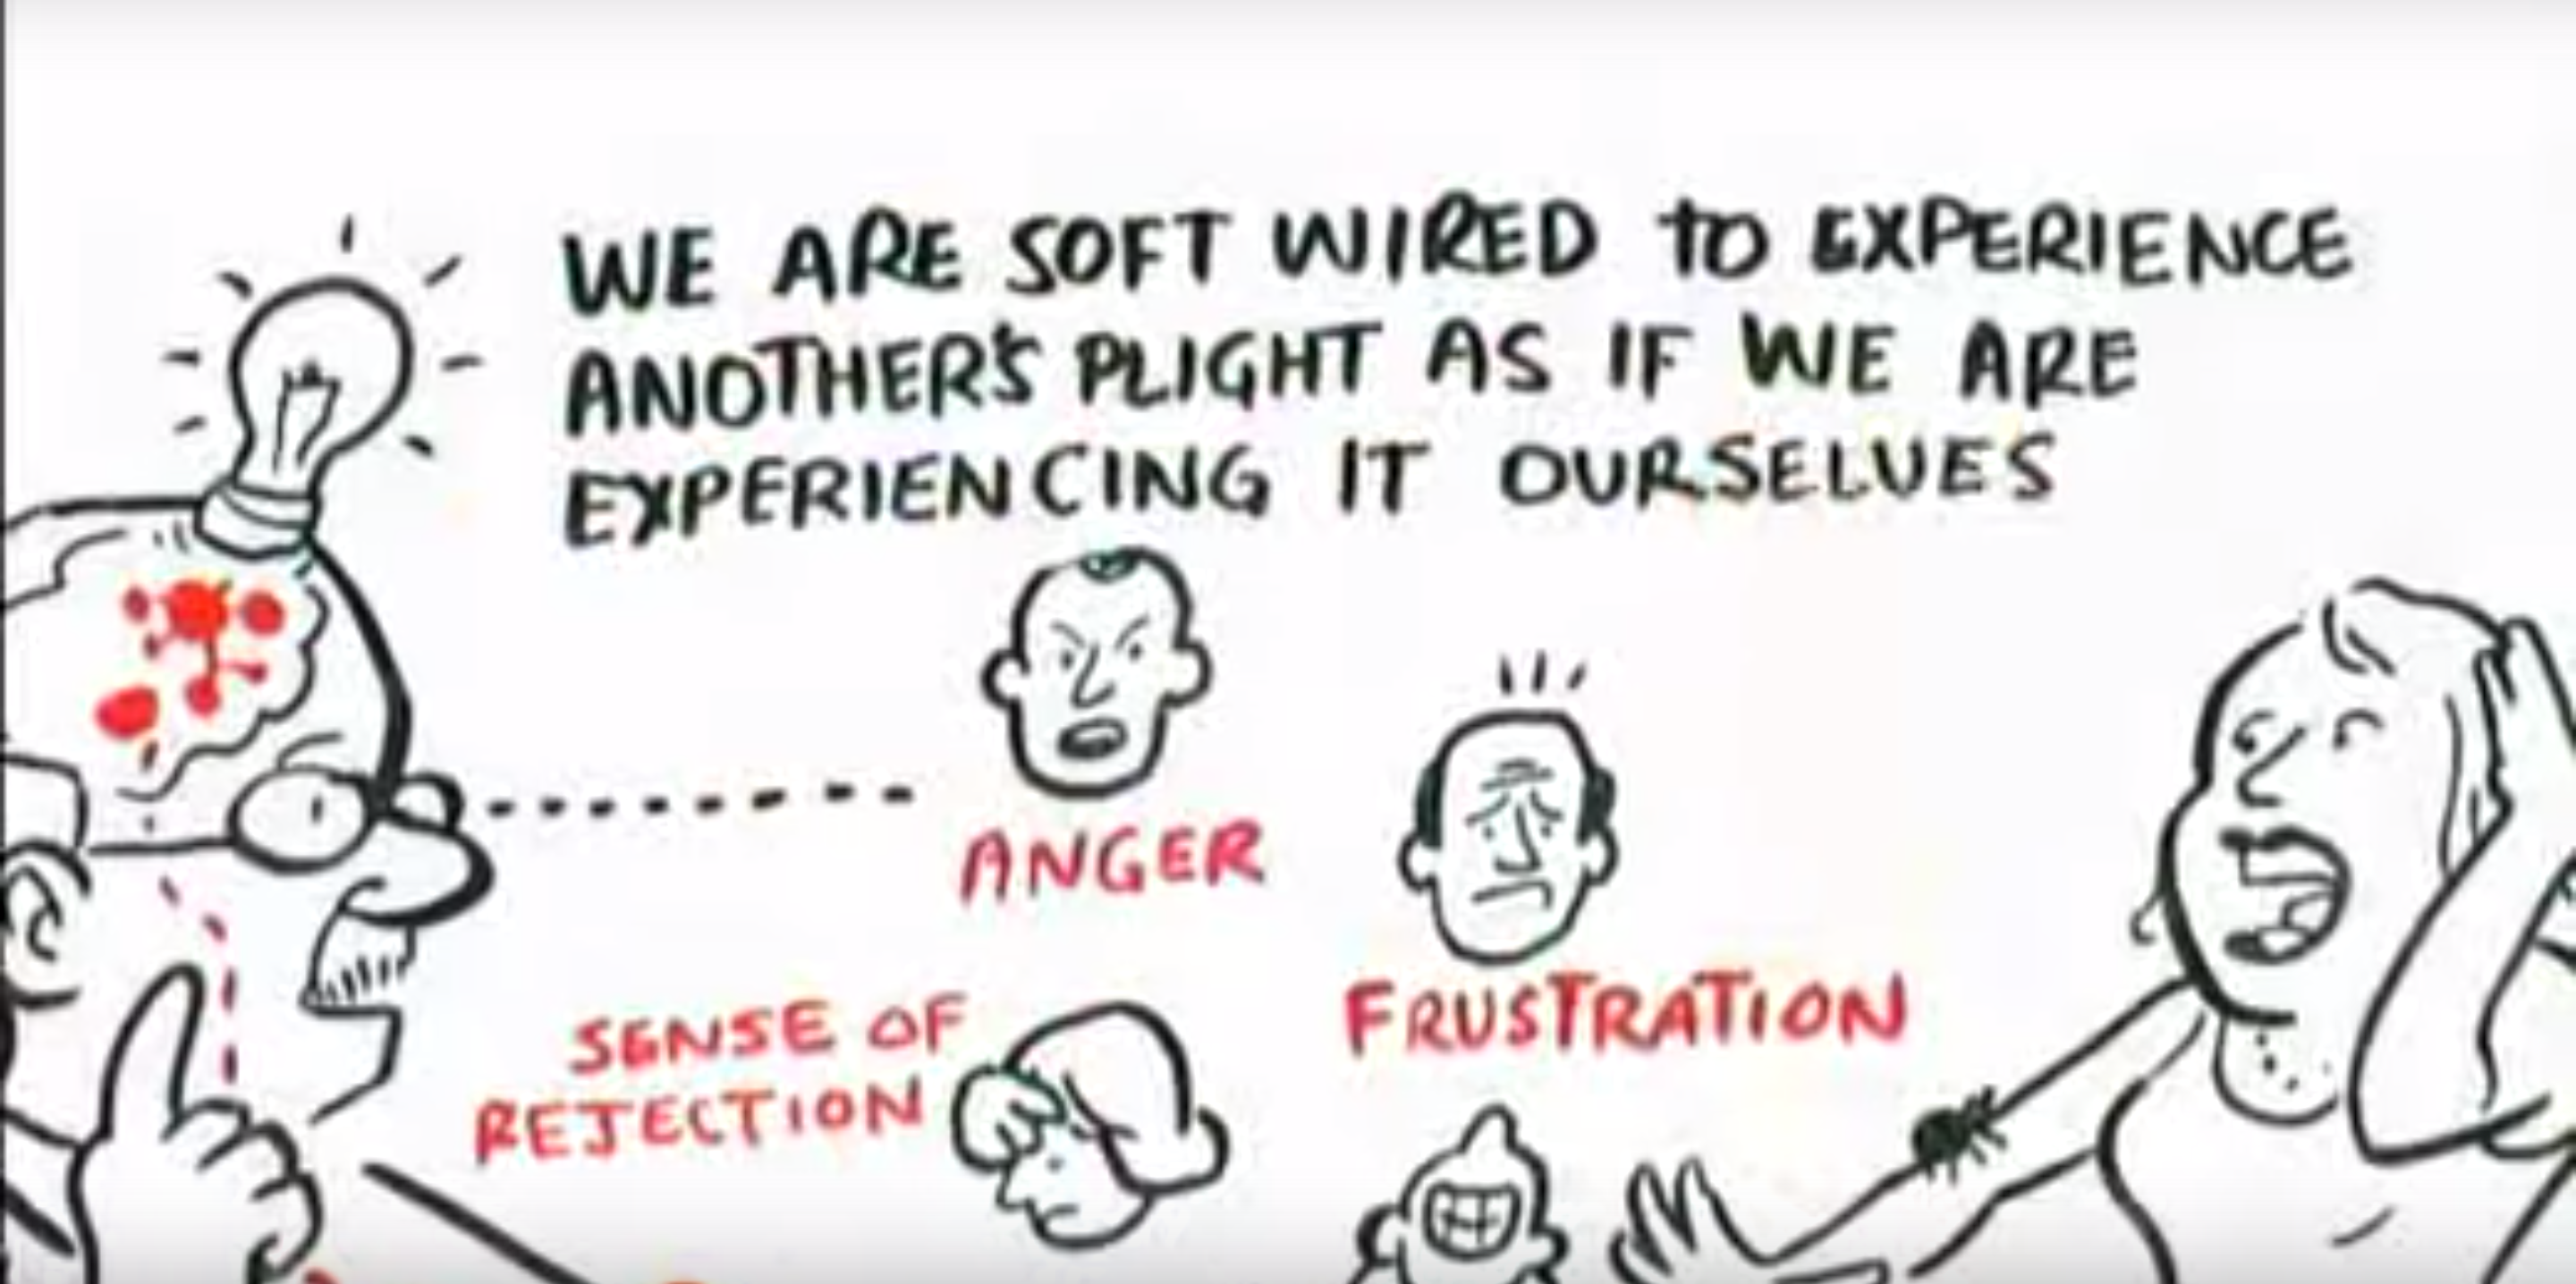 WE ARE SOFT WIRED to EXPERIENCE
ANOTHER'S PLIGHT AS IF WE ARE
EXPERIENCING IT OURSELVES
ANGER
FRUSTRATION
SENSE OF
REJECTION